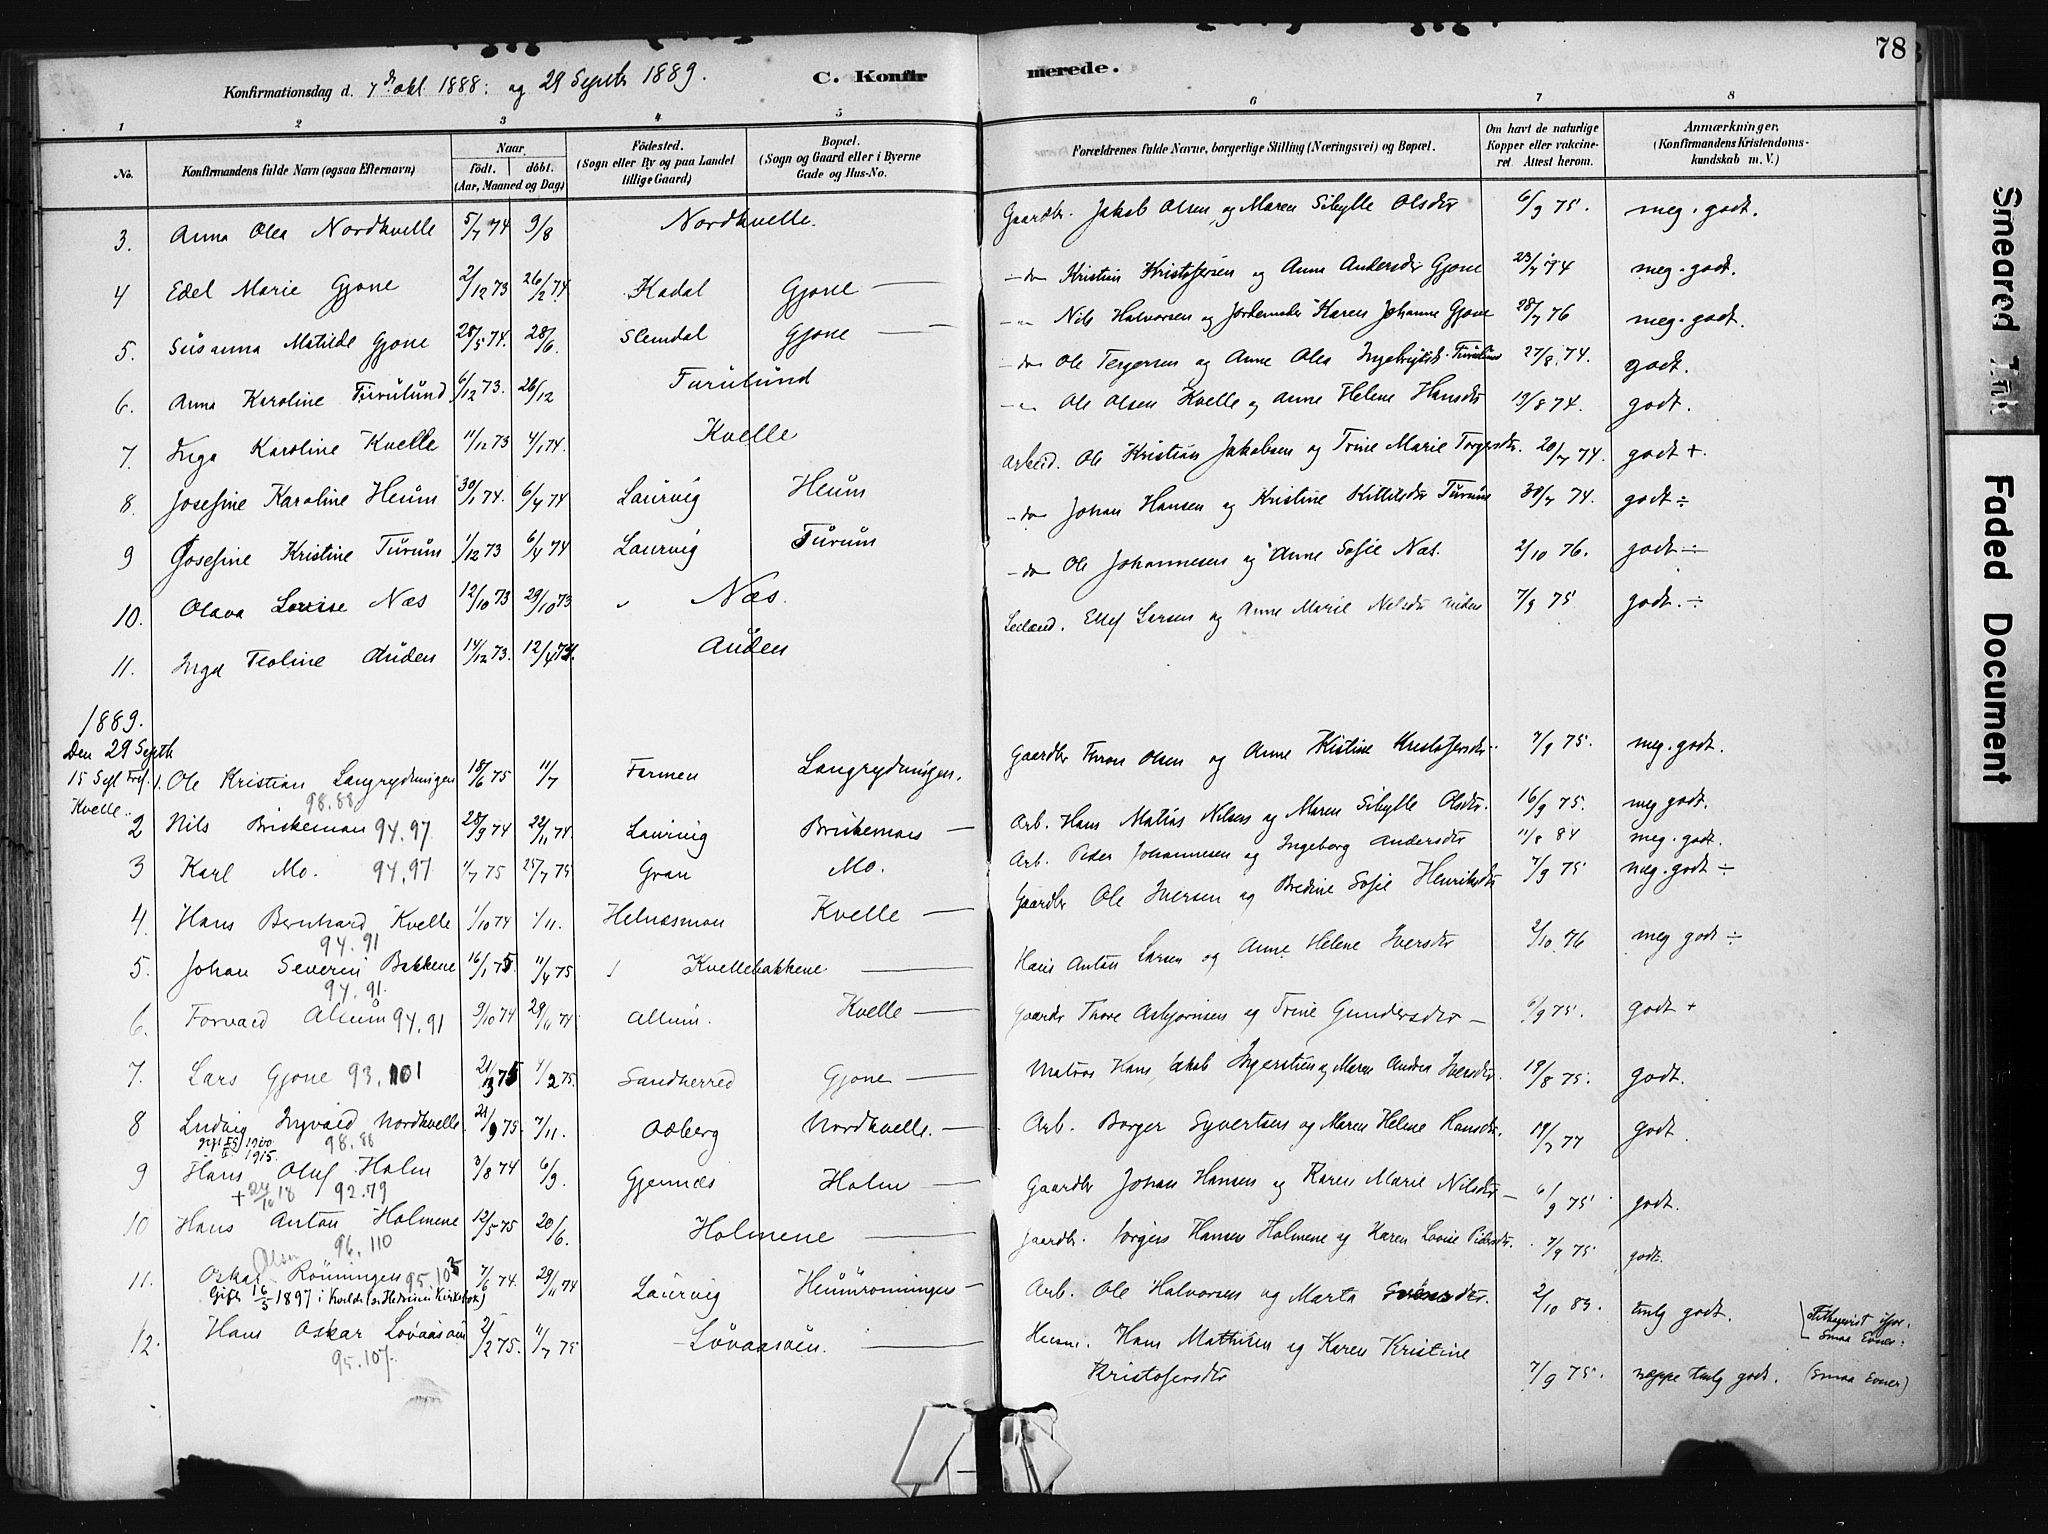 78
Konfirmationsdag d. 7de okt. 1888. og 29 Septr 1889.
C. Konfirmerede.
1 2 3 4 5 6 7 8
No. Konfirmandens fulde Navn (ogsaa Efternavn) Naar födt. döbt. (Aar, Maaned og Dag) Födested. (Sogn eller By og paa Landet tillige Gaard) Bopæl. (Sogn og Gaard eller i Byerne Gade og Hus-No. Forældrenes fulde Navne, borgerlige Stilling (Næringsvei) og Bopæl. Om havt de naturlige Kopper eller vaccineret. Attest herom. Anmærkninger. (Konfirmandens Kristendomskundskab m. V.)
3. Anna Olea Nordkvelle 5/7 74 9/8 Nordkvelle. Gaardbr. Jakob Olsen og Maren Sibylle Olsdtr 6/9 75. meg. godt.
4 Edel Marie Gjone 2/12 73 26/2 74 Hadal Gjone — do Kristian Kristofersen og Anne Andersdtr Gjone 23/7 74 meg. godt.
5. Susanna Matilde Gjone 28/5 74. 28/6. Slemdal Gjone — " Nils Halvorsen og Jordemoder Karen Johanne Gjone 28/7 76 meg. godt.
6. Anna Karoline Furulund 6/12 73. 26/12 Furulund do Ole Tergersen og Anne Olea Ingebrigtsd. Furulund 27/8. 74. godt.
7. Inga Karoline Kvelle 11/12 73 4/1 74. Kvelle " Ole Olsen Kvelle og Anne Helene Hansdtr 19/8 74. godt.
8. Josefine Karoline Heum 30/1 74. 6/4 74 Laurvig Heum Arbeid. Ole Kristian Jakobsen og Trine Marie Torgersdtr. 20/7 74. godt +.
9 Josefine Kristine Furum 1/12 73 6/4 74 Laurvig Furum do Johan Hansen og Kristine Kittilsdtr Furum 30/7 74. godt ÷
10. Olava Lovise Næs 12/10 73 29/10 73 " Næs. do Ole Johannesen og Anne Sofie Næs. 2/10 76. godt ÷
11. Inga Teoline Auden 14/12 73. 12/4 74. Auden Leilænd. Ellef Larsen og Anne Marie Nilsdtr Auden 7/9 75 godt. ÷
1889.
Den 29 Septb
15 Sgl Tref.
Kvelle.
1. Ole Kristian Langrydningen 18/6 75 11/7 Farmen Langrydningen. Gaardbr Thron Olsen og Anne Kistine Kristofersdtr 7/9 75. meg. godt.
98.88
2 Nils Briskemoen 94.97 28/9 74 22/11 74. Laurvig Briskemoen — Arb. Hans Matias Nilsen og Maren Sibylle Olsdtr. 16/9 75. meg godt.
3 Karl Mo. 94.97 1/7 75 25/7 75 Gran Mo. Arb. Peder Johannesen og Ingeborg Andersdtr 11/8 84 meg. godt.
4. Hans Bernhard Kvelle 1/10 74 1/11. Helnæsmon Kvelle — Gaardbr Ole Iversen og Bredine Sofie Henriksdtr 7/9 75 meg. godt ÷
94.91
5. Johan Severin Bakkene 16/1 75 11/4 75 Kvellebakkene — Hans Anton Larsen og Anne Helene Iversdtr 2/10 76 meg godt ÷
94.91.
6. Torvald Alsum 94.91 9/10 74 29/11 74 Allum. Kvelle — Gaardr Thore Asbjørnsen og Trine Gundersdtr — 6/9 75. godt +
7. Lars Gjone 93.101 21/1 75 4/2 75. Sandherred Gjone — Matros Hans Jakob Ingerstien og Maren Andrea Iversdtr. 19/8 75. godt.
8 Ludvig Ingvald Nordkvelle 21/9 75. 7/11. Odberg Nordkvelle. — Arb. Borger Syvertsen og Maren Helene Hansdtr. 19/7 77 godt.
98.88
9 Hans Oluf Holm 3/8 74 6/9. Gjennæs Holm — Gaardbr Johan Hansen og Karen Marie Nilsdtr — 6/9 75 godt.
+ 24/10 18 92.79
10 Hans Anton Holmene 12/5 75 20/6. Holmene — Gaardbr. Jørgen Hansen Holmene og Karen Lovise Pedersdtr. 7/9 75 godt.
96.110
Olsen
11. Oskar Rönningen 95.103 7/6 74. 29/11 74 Laurvig Heumrønningen — Arb. Ole Halvorsen og Marta Svensdtr. 2/10 83. tmlg godt. (Tilhøvist ifjor. Smaa Evner.
Gift 16/5 1897 i Kvelde (se Hedrum Kirkebok)
12. Hans Oskar Lovaasöen 2/2 75. 11/7 75 Lövaasöen. — Husm. Hans Mathisen og Karen Kristine Kristofersdtr 7/9 75. neppe tmlg godt. (Smaa Evner)
95.107.
Smeared Ink
Faded Document